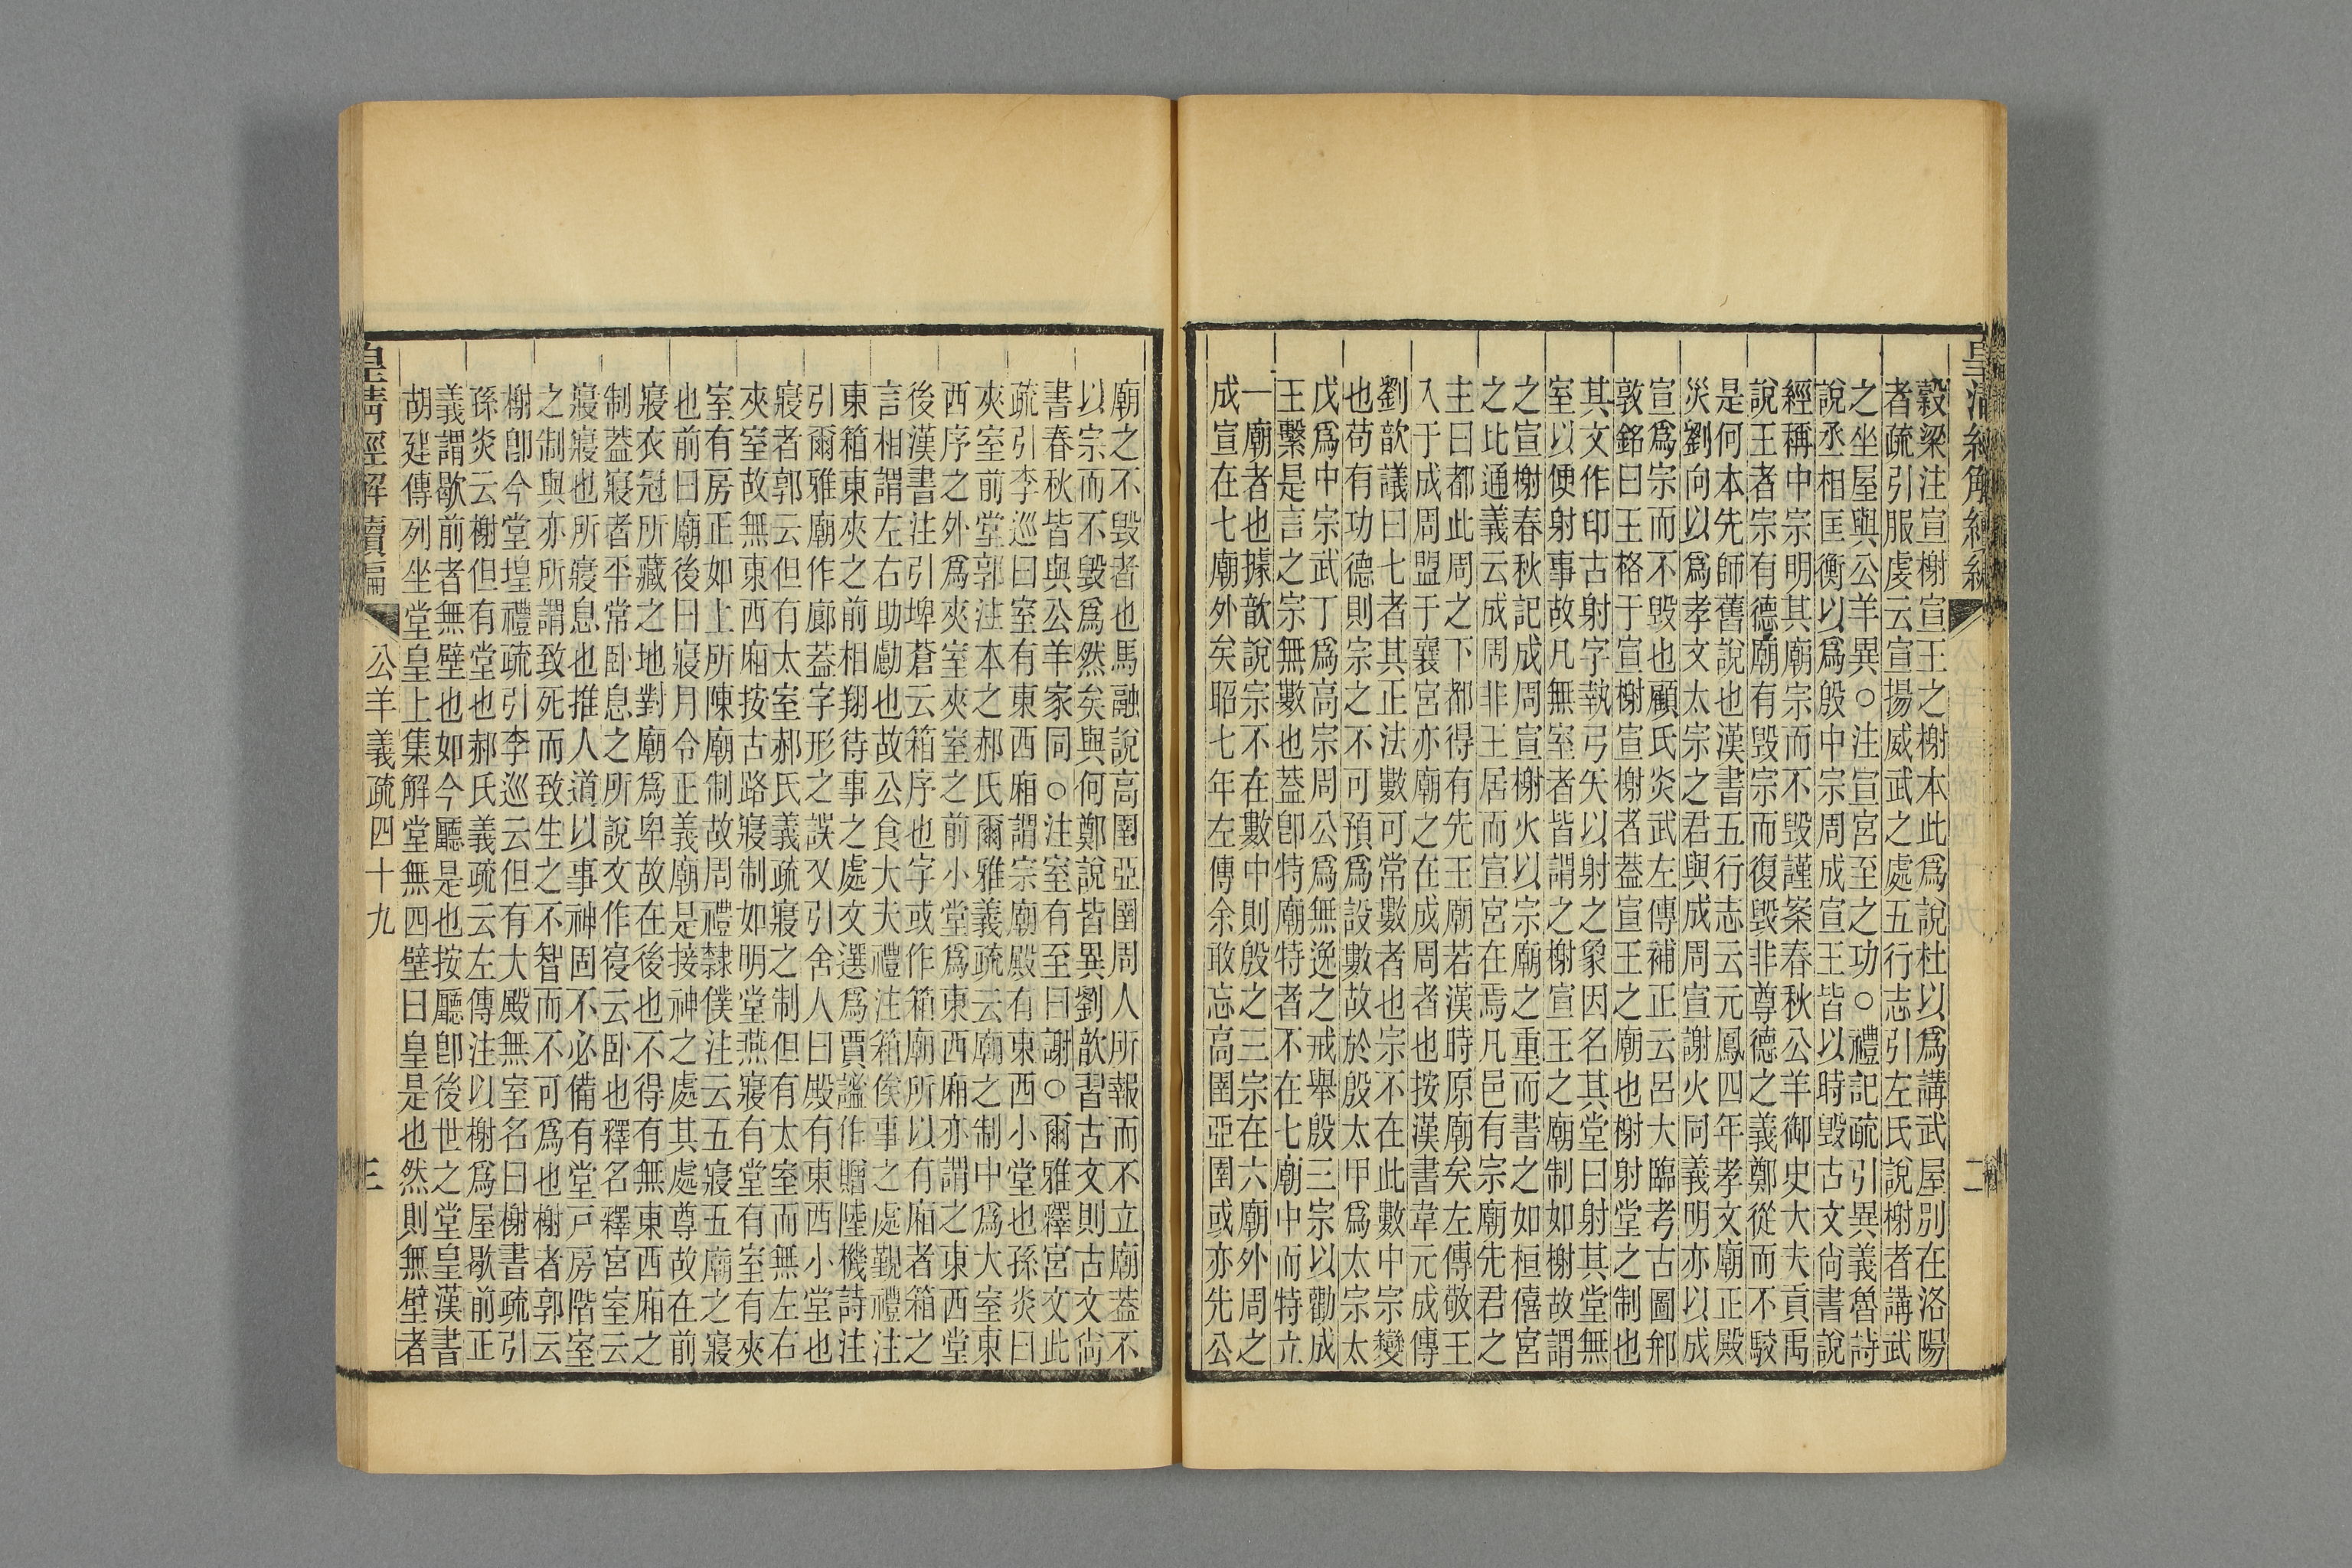 穀梁注宣榭宣王之榭本此爲說杜以爲講武屋別在洛陽
者疏引服虔云宣揚威武之處五行志引左氏說榭者講武
之坐屋與公羊異○注宣宮至之功○禮記疏引異義魯詩
說丞相匡衡以爲殷中宗周成宣王皆以時毀古文尙書說
經稱中宗明其廟宗而不毀謹案春秋公羊御史大夫貢禹
說王者宗有德廟有毀宗而復毀非尊德之義鄭從而不駁
是何本先師舊說也漢書五行志云元鳳四年孝文廟正殿
災劉向以爲孝文太宗之君與成周宣謝火同義明亦以成
宣爲宗而不毀也顧氏炎武左傳補正云呂大臨考古圖邢
敦銘曰王格于宣榭宣榭者葢宣王之廟也榭射堂之制也
其文作印古射字執弓矢以射之象因名其堂曰射其堂無
室以便射事故凡無室者皆謂之榭宣王之廟制如榭故謂
之宣榭春秋記成周宣榭火以宗廟之重而書之如桓僖宮
之比通義云成周非王居而宣宮在焉凡邑有宗廟先君之
主曰都此周之下都得有先王廟若漢時原廟矣左傳敬王
入于成周盟于襄宮亦廟之在成周者也按漢書韋元成傳
劉歆議曰七者其正法數可常數者也宗不在此數中宗變
也苟有功德則宗之不可預爲設數故於殷太甲爲太宗太
戊爲中宗武丁爲高宗周公爲無逸之戒舉殷三宗以勸成
王繫是言之宗無數也葢卽特廟特者不在七廟中而特立
一廟者也據歆說宗不在數中則殷之三宗在六廟外周之
成宣在七廟外矣昭七年左傳余敢忘高圉亞圉或亦先公
廟之不毀者也馬融說高圉亞圉周人所報而不立廟葢不
以宗而不毀爲然矣與何鄭說皆異劉歆習古文則古文尙
書春秋皆與公羊家同○注室有至曰謝○爾雅釋宮文此
疏引李巡曰室有東西廂謂宗廟殿有東西小堂也孫炎曰
夾室前堂郭注本之郝氏爾雅義疏云廟之制中爲大室東
西序之外爲夾室夾室之前小堂爲東西廂亦謂之東西堂
後漢書注引埤蒼云箱序也字或作箱廟所以有廂者箱之
言相謂左右助勴也故公食大夫禮注箱俟事之處覲禮注
東箱東夾之前相翔待事之處文選爲賈謐作贈陸機詩注
引爾雅廟作廊葢字形之誤又引舍人曰殿有東西小堂也
寢者郭云但有太室郝氏義疏寢之制但有太室而無左右
夾室故無東西廂按古路寢制如明堂燕寢有堂有室有夾
室有房正如上所陳廟制故周禮隸僕注云五寢五廟之寢
也前曰廟後曰寢月令正義廟是接神之處其處尊故在前
寢衣冠所藏之地對廟爲卑故在後也不得有無東西廂之
制葢寢者平常卧息之所說文作㝲云卧也釋名釋宮室云
寢寢也所寢息也推人道以事神固不必備有堂戸房階室
之制與亦所謂致死而致生之不智而不可爲也榭者郭云
榭卽今堂堭禮疏引李巡云但有大殿無室名曰榭書疏引
孫炎云榭但有堂也郝氏義疏云左傳注以榭爲屋歇前正
義謂歇前者無壁也如今廳是也按廳卽後世之堂皇漢書
胡建傳列坐堂皇上集解堂無四壁曰皇是也然則無壁者
皇淸經解續編
公羊義疏四十九
三